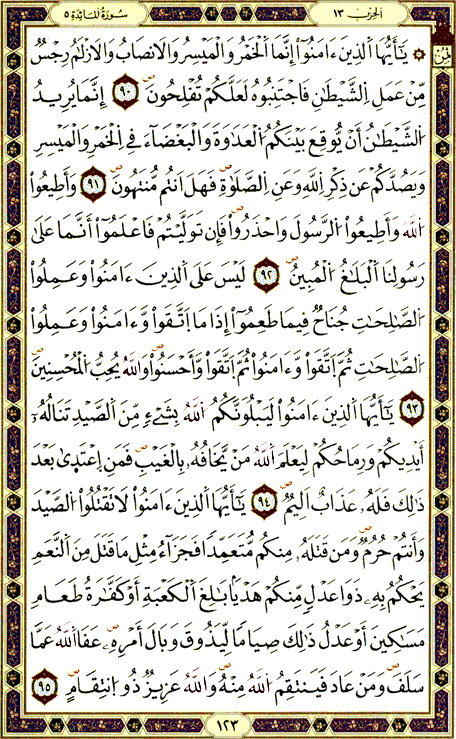 سُورَةُ الْمَائِدَة ٥ الحِزْب ١٣
ثُمُن
۞ يَٰٓأَيُّهَا اَ۬لذِينَ ءَامَنُوٓاْ إِنَّمَا اَ۬لْخَمْرُ وَالْمَيْسِرُ وَالَانصَابُ وَالَازْلَٰمُ رِجْسٞ
مِّنْ عَمَلِ اِ۬لشَّيْطَٰنِ فَاجْتَنِبُوهُ لَعَلَّكُمْ تُفْلِحُونَۖ ٩٠ إِنَّمَا يُرِيدُ
اُ۬لشَّيْطَٰنُ أَنْ يُّوقِعَ بَيْنَكُمُ اُ۬لْعَدَٰوَةَ وَالْبَغْضَآءَ فِے اِ۬لْخَمْرِ وَالْمَيْسِرِ
وَيَصُدَّكُمْ عَن ذِكْرِ اِ۬للَّهِ وَعَنِ اِ۬لصَّلَوٰةِۖ فَهَلَ اَنتُم مُّنتَهُونَۖ ٩١ وَأَطِيعُواْ
اُ۬للَّهَ وَأَطِيعُواْ اُ۬لرَّسُولَ وَاحْذَرُواْۖ فَإِن تَوَلَّيْتُمْ فَاعْلَمُوٓاْ أَنَّمَا عَلَىٰ
رَسُولِنَا اَ۬لْبَلَٰغُ اُ۬لْمُبِينُۖ ٩٢ لَيْسَ عَلَى اَ۬لذِينَ ءَامَنُواْ وَعَمِلُواْ
اُ۬لصَّٰلِحَٰتِ جُنَاحٞ فِيمَا طَعِمُوٓاْ إِذَا مَا اَ۪تَّقَواْ وَّءَامَنُواْ وَعَمِلُواْ
اُ۬لصَّٰلِحَٰتِ ثُمَّ اَ۪تَّقَواْ وَّءَامَنُواْ ثُمَّ اَ۪تَّقَواْ وَّأَحْسَنُواْۖ وَاللَّهُ يُحِبُّ اُ۬لْمُحْسِنِينَۖ
٩٣ يَٰٓأَيُّهَا اَ۬لذِينَ ءَامَنُواْ لَيَبْلُوَنَّكُمُ اُ۬للَّهُ بِشَےْءٖ مِّنَ اَ۬لصَّيْدِ تَنَالُهُۥٓ
أَيْدِيكُمْ وَرِمَاحُكُمْ لِيَعْلَمَ اَ۬للَّهُ مَنْ يَّخَافُهُۥ بِالْغَيْبِۖ فَمَنِ اِ۪عْتَد۪ىٰ بَعْدَ
ذَٰلِكَ فَلَهُۥ عَذَابٌ اَلِيمٞۖ ٩٤ يَٰٓأَيُّهَا اَ۬لذِينَ ءَامَنُواْ لَا تَقْتُلُواْ اُ۬لصَّيْدَ
وَأَنتُمْ حُرُمٞۖ وَمَن قَتَلَهُۥ مِنكُم مُّتَعَمِّداٗ فَجَزَآءُ مِثْلِ مَا قَتَلَ مِنَ اَ۬لنَّعَمِ
يَحْكُمُ بِهِۦ ذَوَا عَدْلٖ مِّنكُمْ هَدْيَاۢ بَٰلِغَ اَ۬لْكَعْبَةِ أَوْ كَفَّٰرَةُ طَعَامِ
مَسَٰكِينَ أَوْ عَدْلُ ذَٰلِكَ صِيَاماٗ لِّيَذُوقَ وَبَالَ أَمْرِهِۦۖ عَفَا اَ۬للَّهُ عَمَّا
سَلَفَۖ وَمَنْ عَادَ فَيَنتَقِمُ اُ۬للَّهُ مِنْهُۖ وَاللَّهُ عَزِيزٞ ذُو اُ۪نتِقَامٍۖ ٩٥
١٢٣